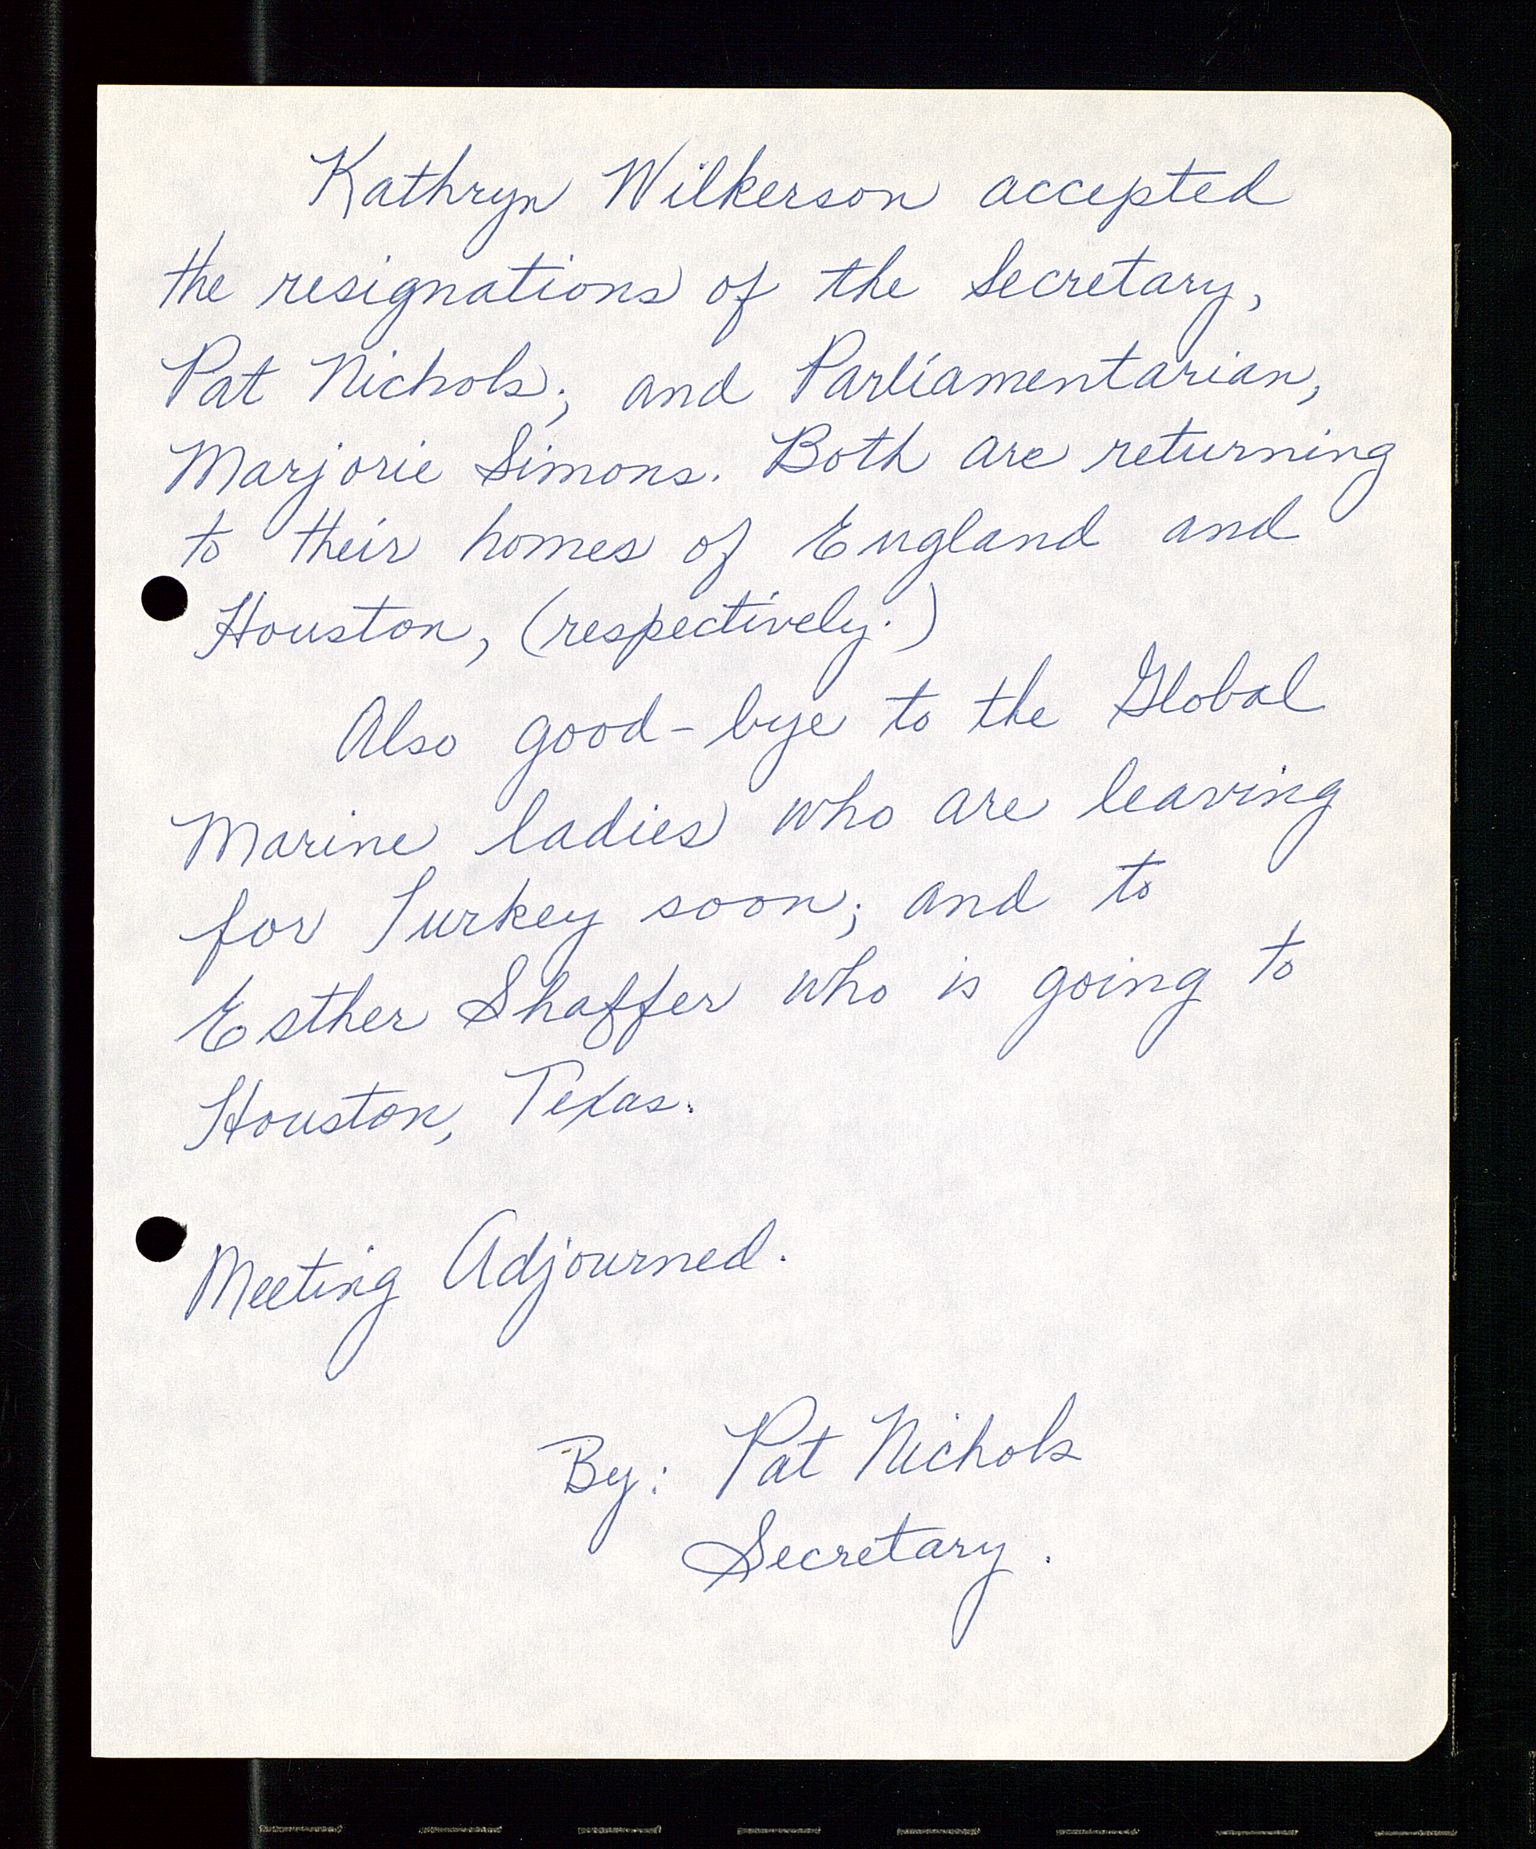 Kathryn Wilkerson accepted
the resignations of the Secretary,
Pat Nichols; and Parliamentarian,
Marjorie Simons. Both are returning
to their homes of England and
Houston, (respectively.)
Also good-bye to the Global
Marine ladies who are leaving
for Turkey soon; and to
Esther Shaffer who is going to
Houston, Texas.
Meeting Adjourned.
By: Pat Nichols
Secretary.